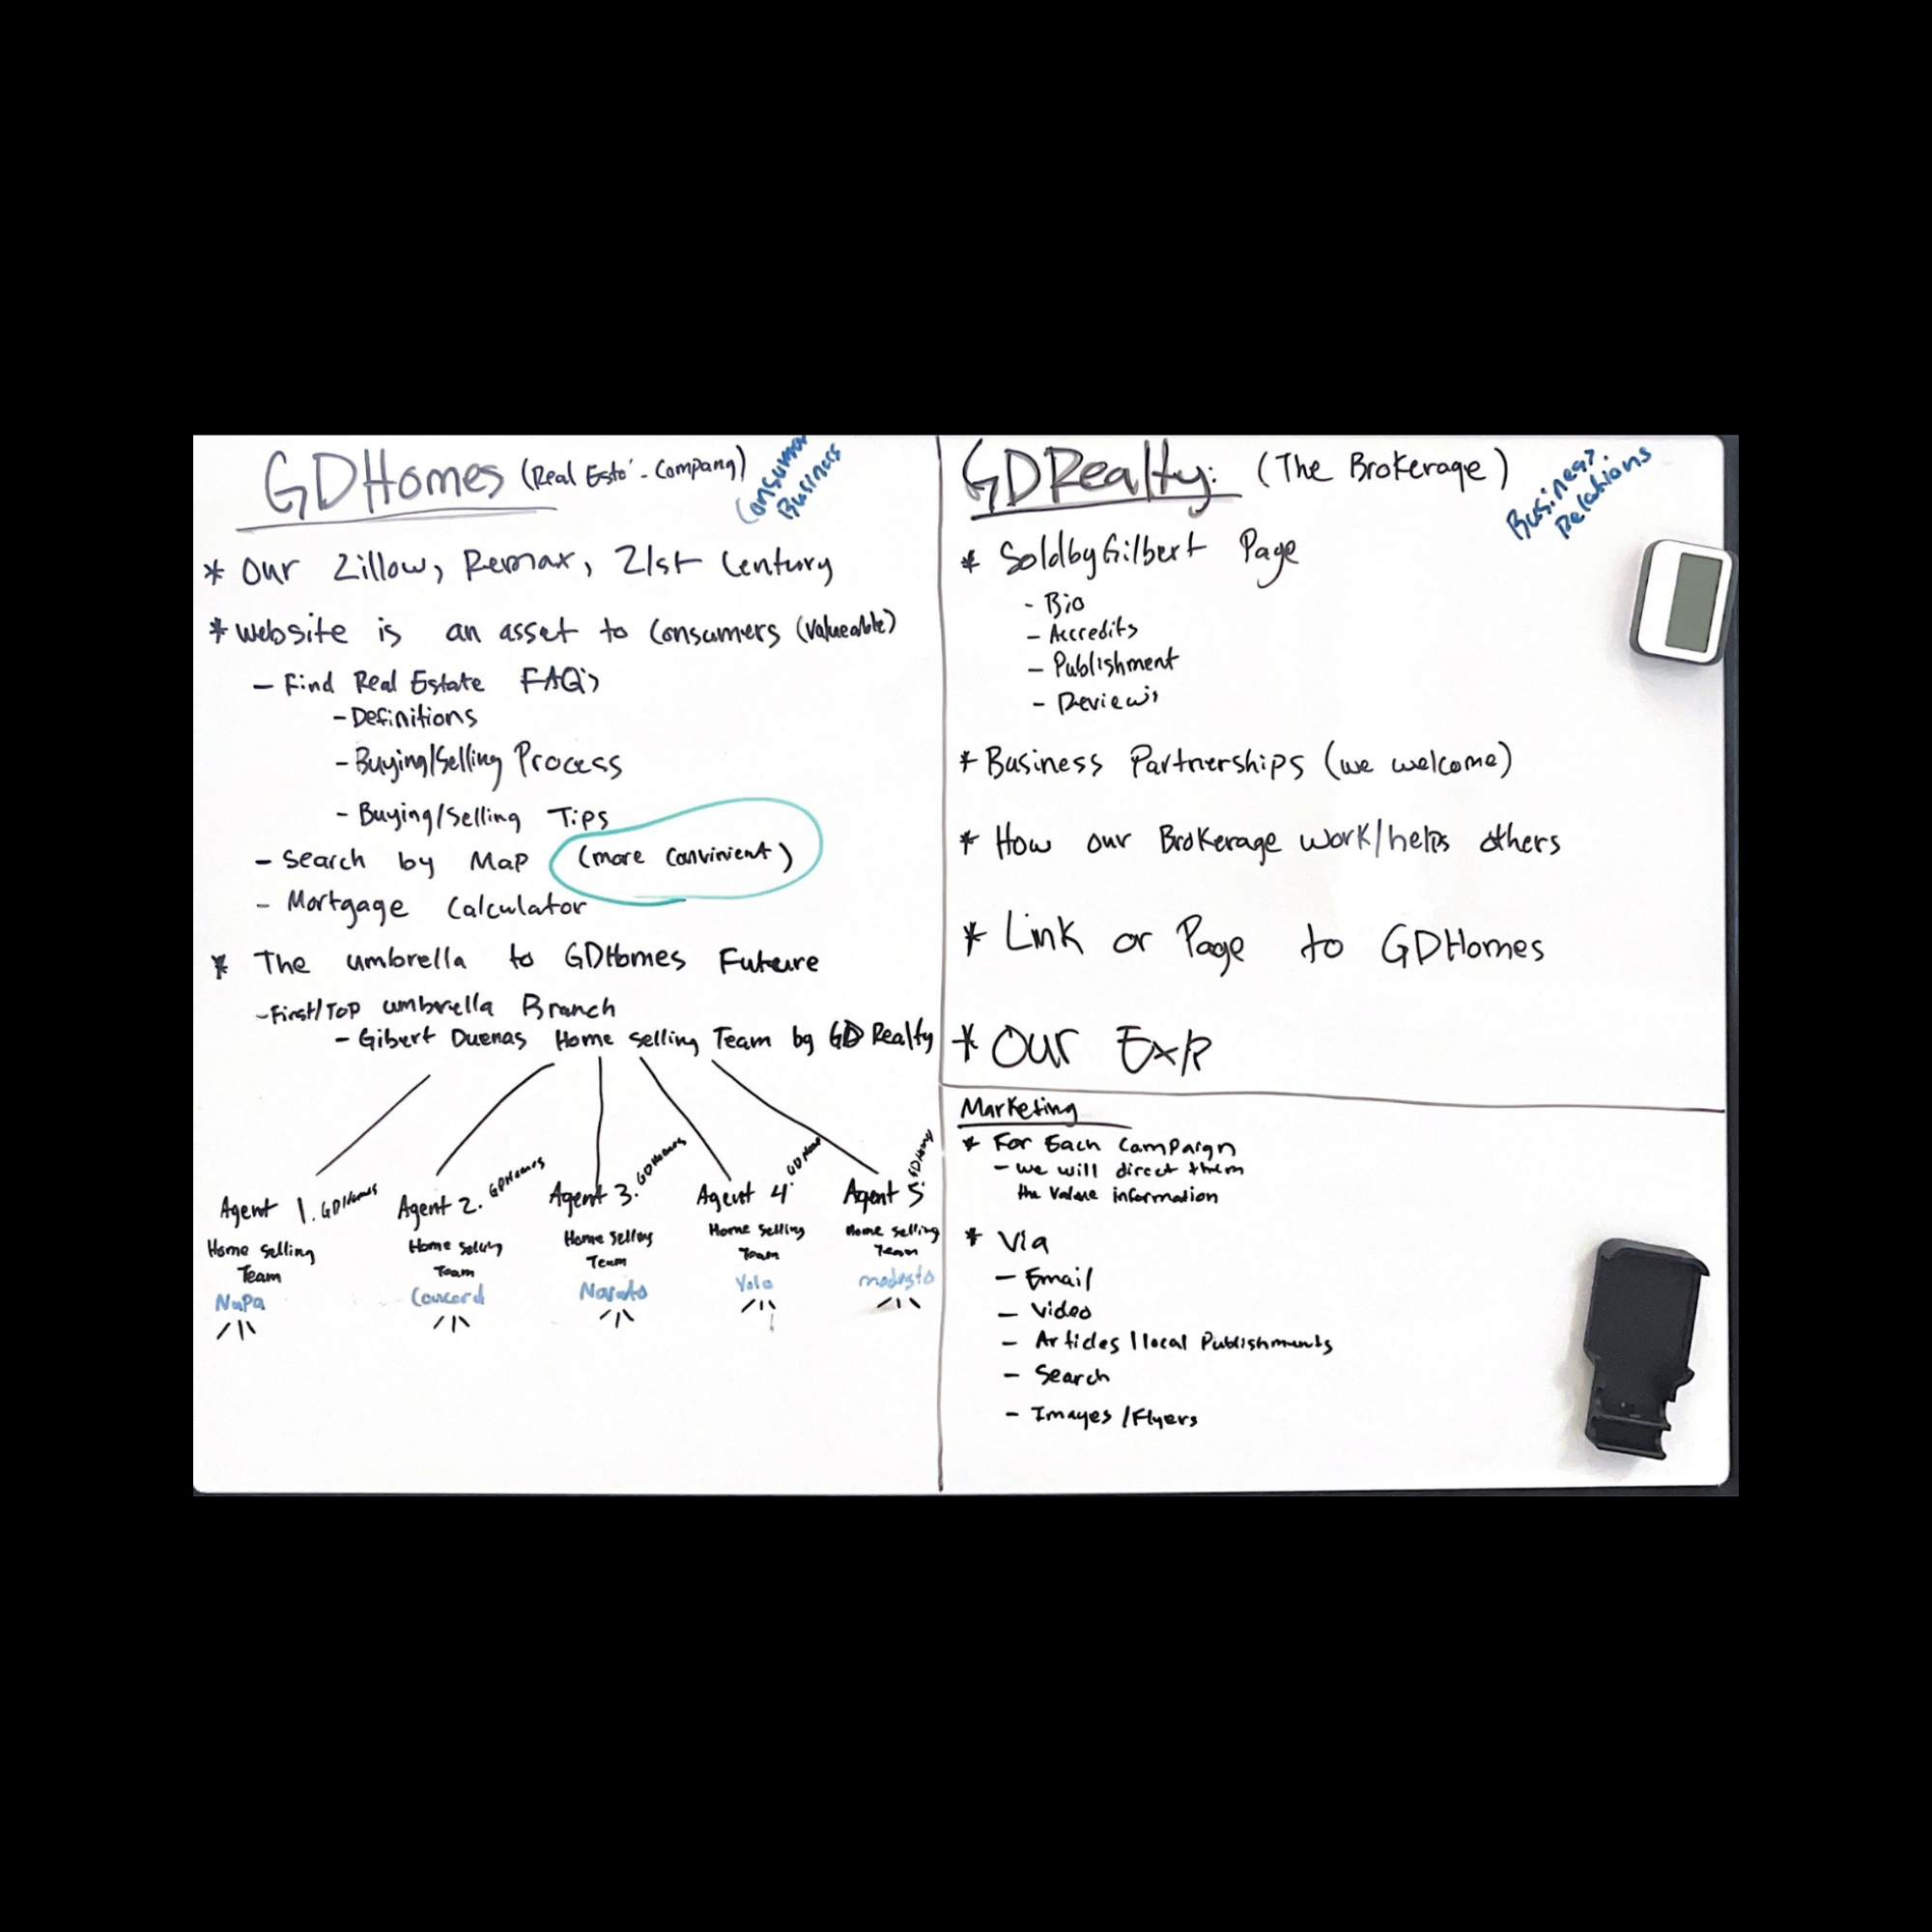 GDHomes (Real Esta - Company) Consumer Business
* Our Zillow, Remax, 21st Century
* Website is an asset to Consumers (Valueable)
- Find Real Estate FAQ's
- Definitions
- Buying/Selling Process
- Buying/Selling Tips
- Search by Map (more convinient)
- Mortgage Calculator
* The umbrella to GDHomes Future
- First/Top umbrella Branch
- Gibert Duenas Home Selling Team by GD Realty
Agent 1. GDHomes
Home Selling
Team
Napa
Agent 2. GDHomes
Home Selling
Team
Concord
Agent 3. GDHomes
Home Selling
Team
Agent 4. GDHomes
Home Selling
Team
Yolo
Agent 5. GDHomes
Home Selling
Team
modesto
GDRealty: (The Brokerage) Business Relations
* SoldbyGilbert Page
- Bio
- Accredits
- Publishment
- Reviews
* Business Partnerships (we welcome)
* How our Brokerage work/helps others
* Link or Page to GDHomes
* Our Exp
Marketing
* For Each Campaign
- we will direct them
the value information
* Via
- Email
- Video
- Articles/local Publishments
- Search
- Images/Flyers